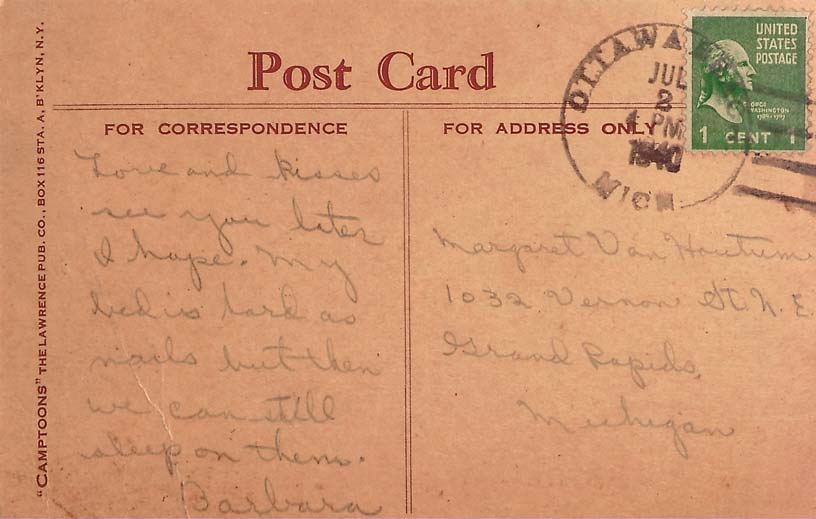 "CAMPTOONS" THE LAWRENCE PUB. CO., BOX 116 STA. A, B'KLYN, N.Y.
Post Card
FOR CORRESPONDENCE
Love and kisses
see you later
I hope. My
bed is hard as
nails but then
we can still
sleep on them.
Barbara
FOR ADDRESS ONLY
Margaret Van Houtum
1032 Vernon St. N.E.
Grand Rapids,
Michigan
OTTAWA
JUL
2
4 PM
1940
MICH
UNITED
STATES
POSTAGE
GEORGE
WASHINGTON
1789-1797
1 CENT 1